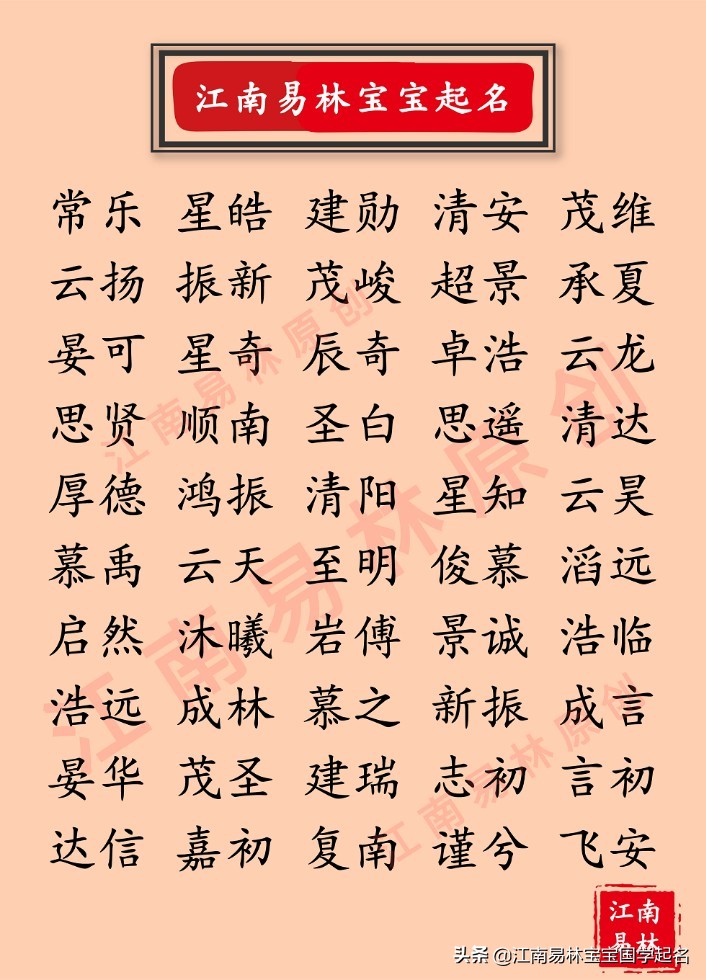 江南易林宝宝起名
常乐 星皓 建勋 清安 茂维
云扬 振新 茂峻 超景 承夏
晏可 星奇 辰奇 卓浩 云龙
思贤 顺南 圣白 思遥 清达
厚德 鸿振 清阳 星知 云昊
慕禹 云天 至明 俊慕 滔远
启然 沐曦 岩傅 景诚 浩临
浩远 成林 慕之 新振 成言
晏华 茂圣 建瑞 志初 言初
达信 嘉初 复南 谨兮 飞安
江南易林原创
江南易林原创
江南易林原创
江南
易林
头条 @江南易林宝宝国学起名